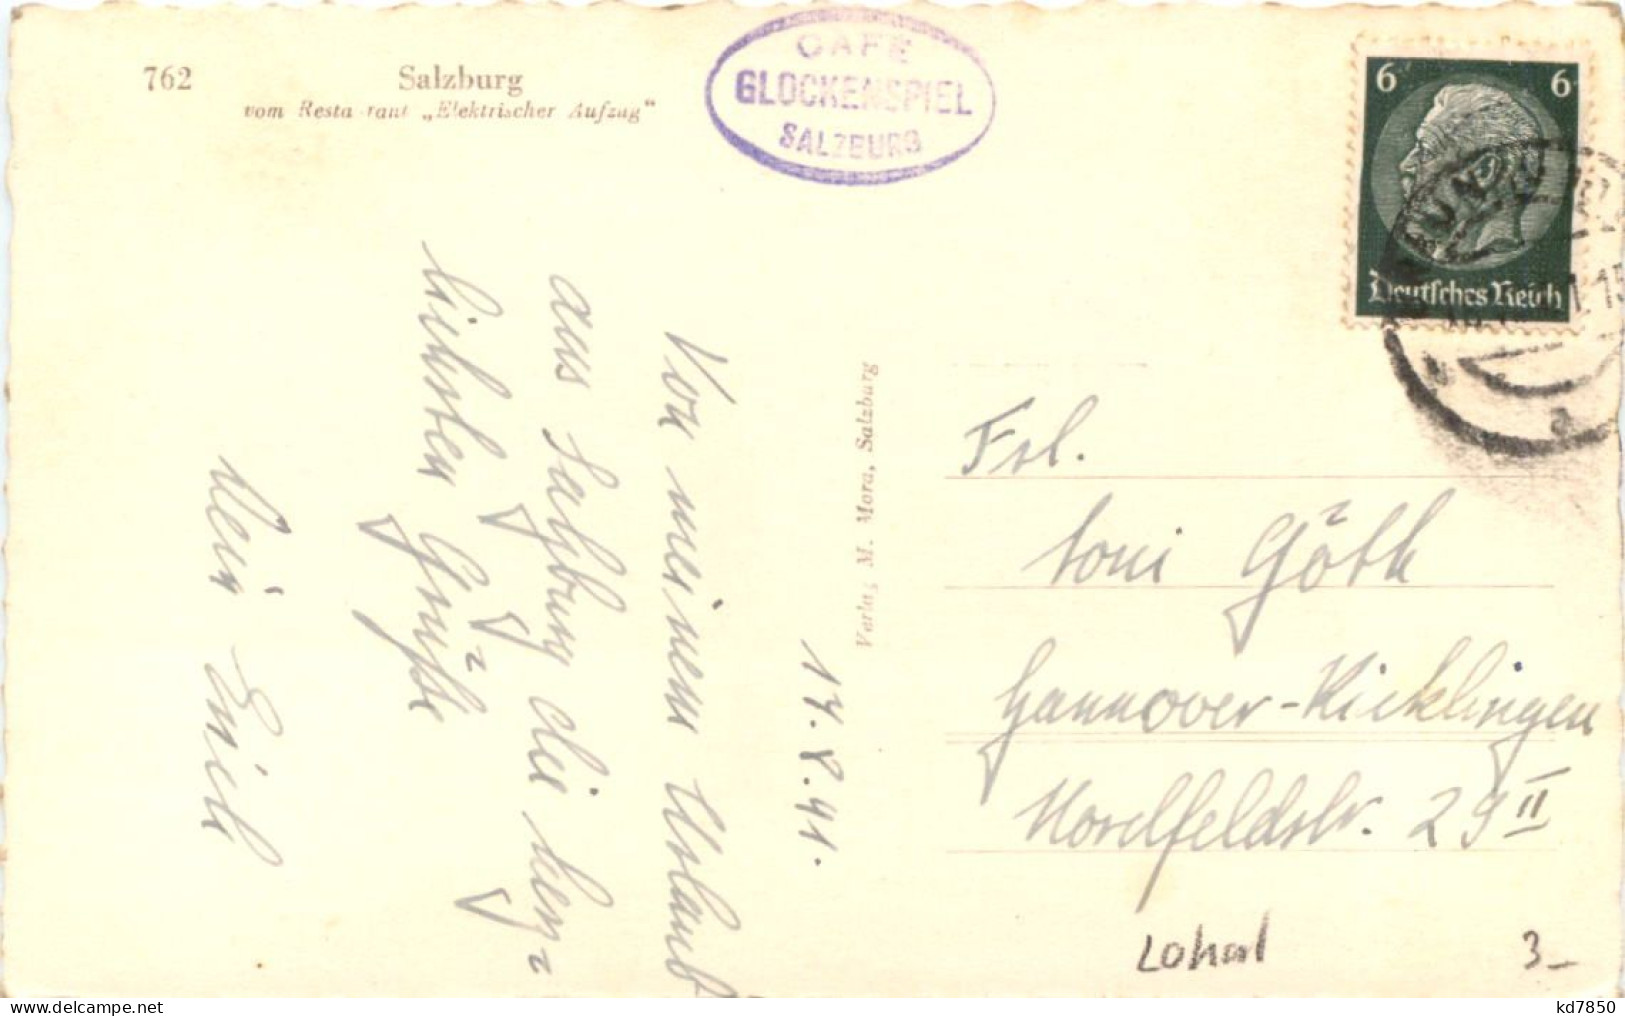 762
Salzburg
vom Restaurant „Elektrischer Aufzug"
CAFE
GLOCKENSPIEL
SALZBURG
6 6
Deutsches Reich
17.8.41.
Von meinem Urlaub
aus Salzburg die herz=
lichsten Grüße
Dein Emil
Verlag M. Mora, Salzburg
Frl.
Toni Göth
Hannover-Ricklingen
Nordfeldstr. 29 II
3_
kd7850